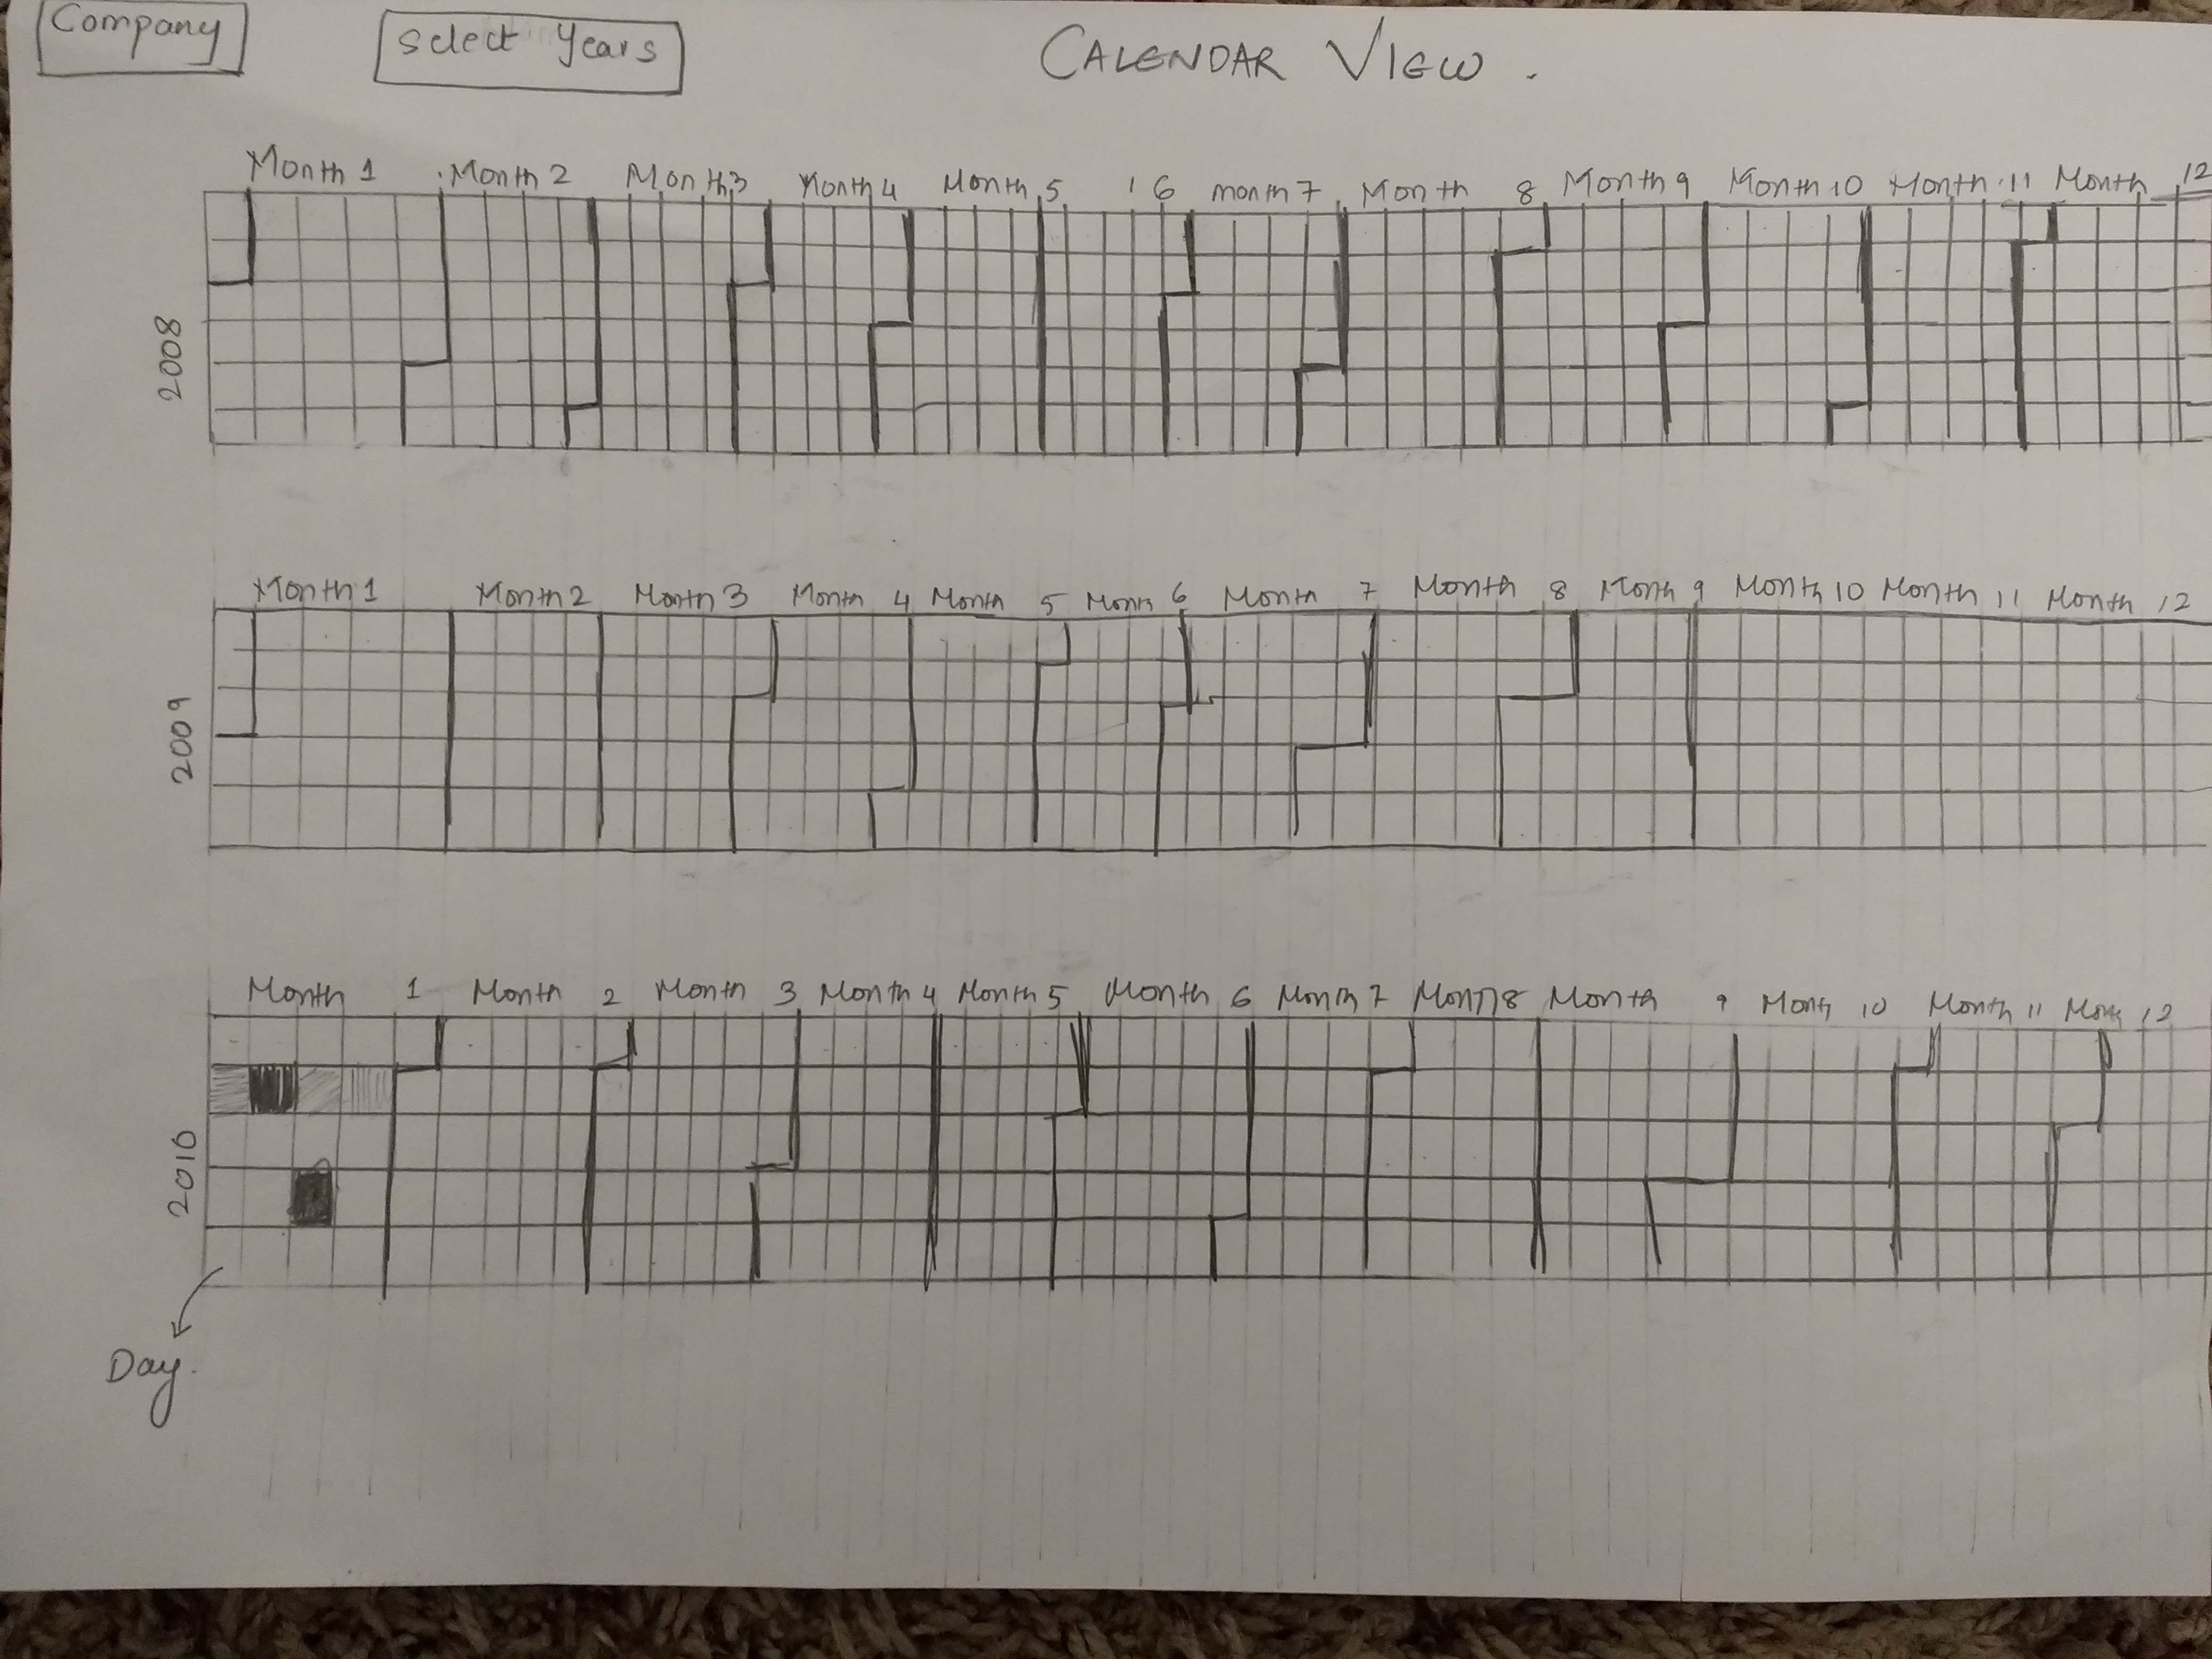 Company
Select Years
CALENDAR VIEW.
Month 1 Month 2 Month 3 Month 4 Month 5 6 month 7 Month 8 Month 9 Month 10 Month 11 Month 12
2008
Month 1 Month 2 Month 3 Month 4 Month 5 Month 6 Month 7 Month 8 Month 9 Month 10 Month 11 Month 12
2009
Month 1 Month 2 Month 3 Month 4 Month 5 Month 6 Month 7 Month 8 Month 9 Month 10 Month 11 Month 12
2010
Day.